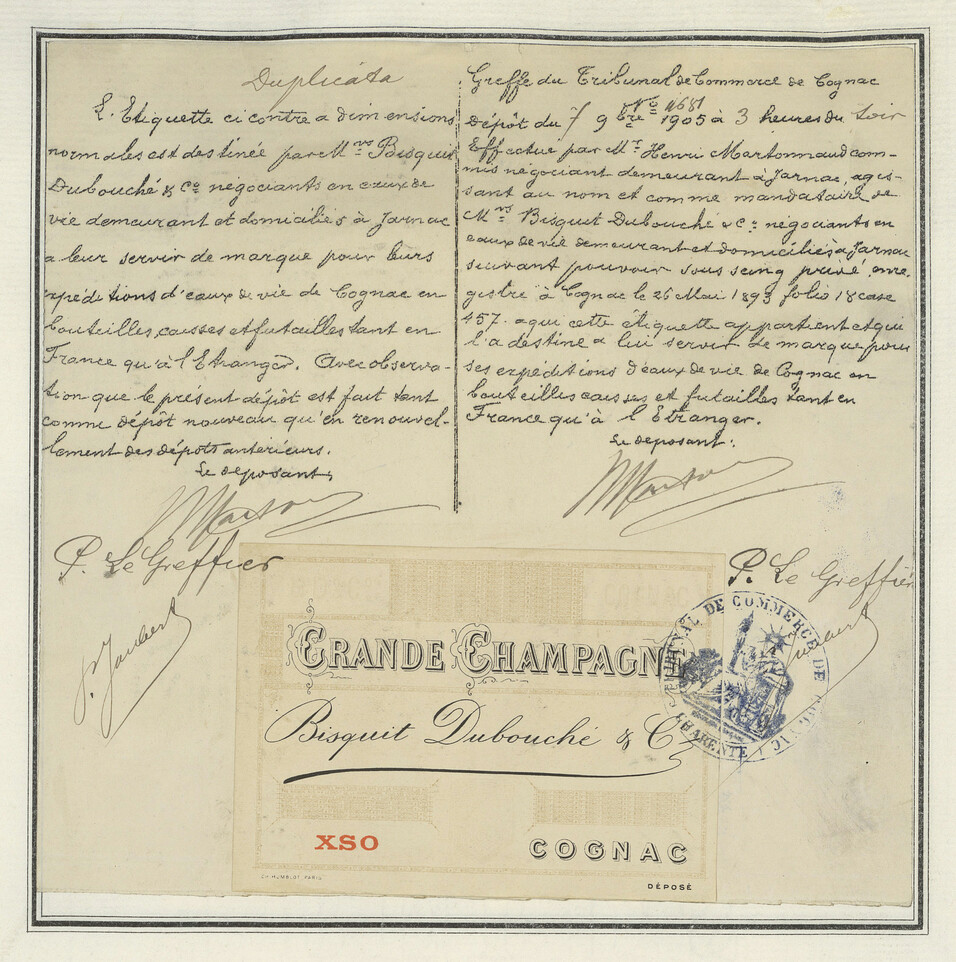 Duplicata
L'Etiquette ci contre a dimensions
normales est destinée par Mrs Bisquit
Dubouché & Co négociants en eaux de
vie demeurant et domiciliés à Jarnac
a leur servir de marque pour leurs
expéditions d'eaux de vie de Cognac en
bouteilles, caisses et futailles tant en
France qu'à l'Etranger. Avec observa-
tion que le présent dépôt est fait tant
comme dépôt nouveau qu'en renouvel-
lement des dépôts antérieurs.
Le déposant,
P. Le Greffier
Greffe du Tribunal de Commerce de Cognac
No 4681
Dépôt du 7 9bre 1905 à 3 heures du soir
Effectué par Mr Henri Martonnaud com-
mis négociant demeurant à Jarnac, agis-
sant au nom et comme mandataire de
Mrs Bisquit Dubouché & Co négociants en
eaux de vie demeurant et domiciliés à Jarnac
suivant pouvoir sous seing privé, enre-
gistré à Cognac le 26 Mai 1893 folio 18 case
457. a qui cette étiquette appartient et qui
l'a destiné a lui servir de marque pour
ses expéditions d'eaux de vie de Cognac en
bouteilles caisses et futailles tant en
France qu'à l'Etranger.
Le déposant:
P. Le Greffier
TRIBUNAL DE COMMERCE DE COGNAC
(CHARENTE)
GRANDE CHAMPAGN
Bisquit Dubouché & Co
XSO
COGNAC
CH. HUMBLOT. PARIS
DÉPOSÉ